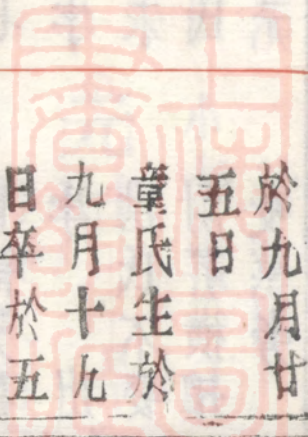 於九月廿
五日
童氏生於
九月十九
日卒於五